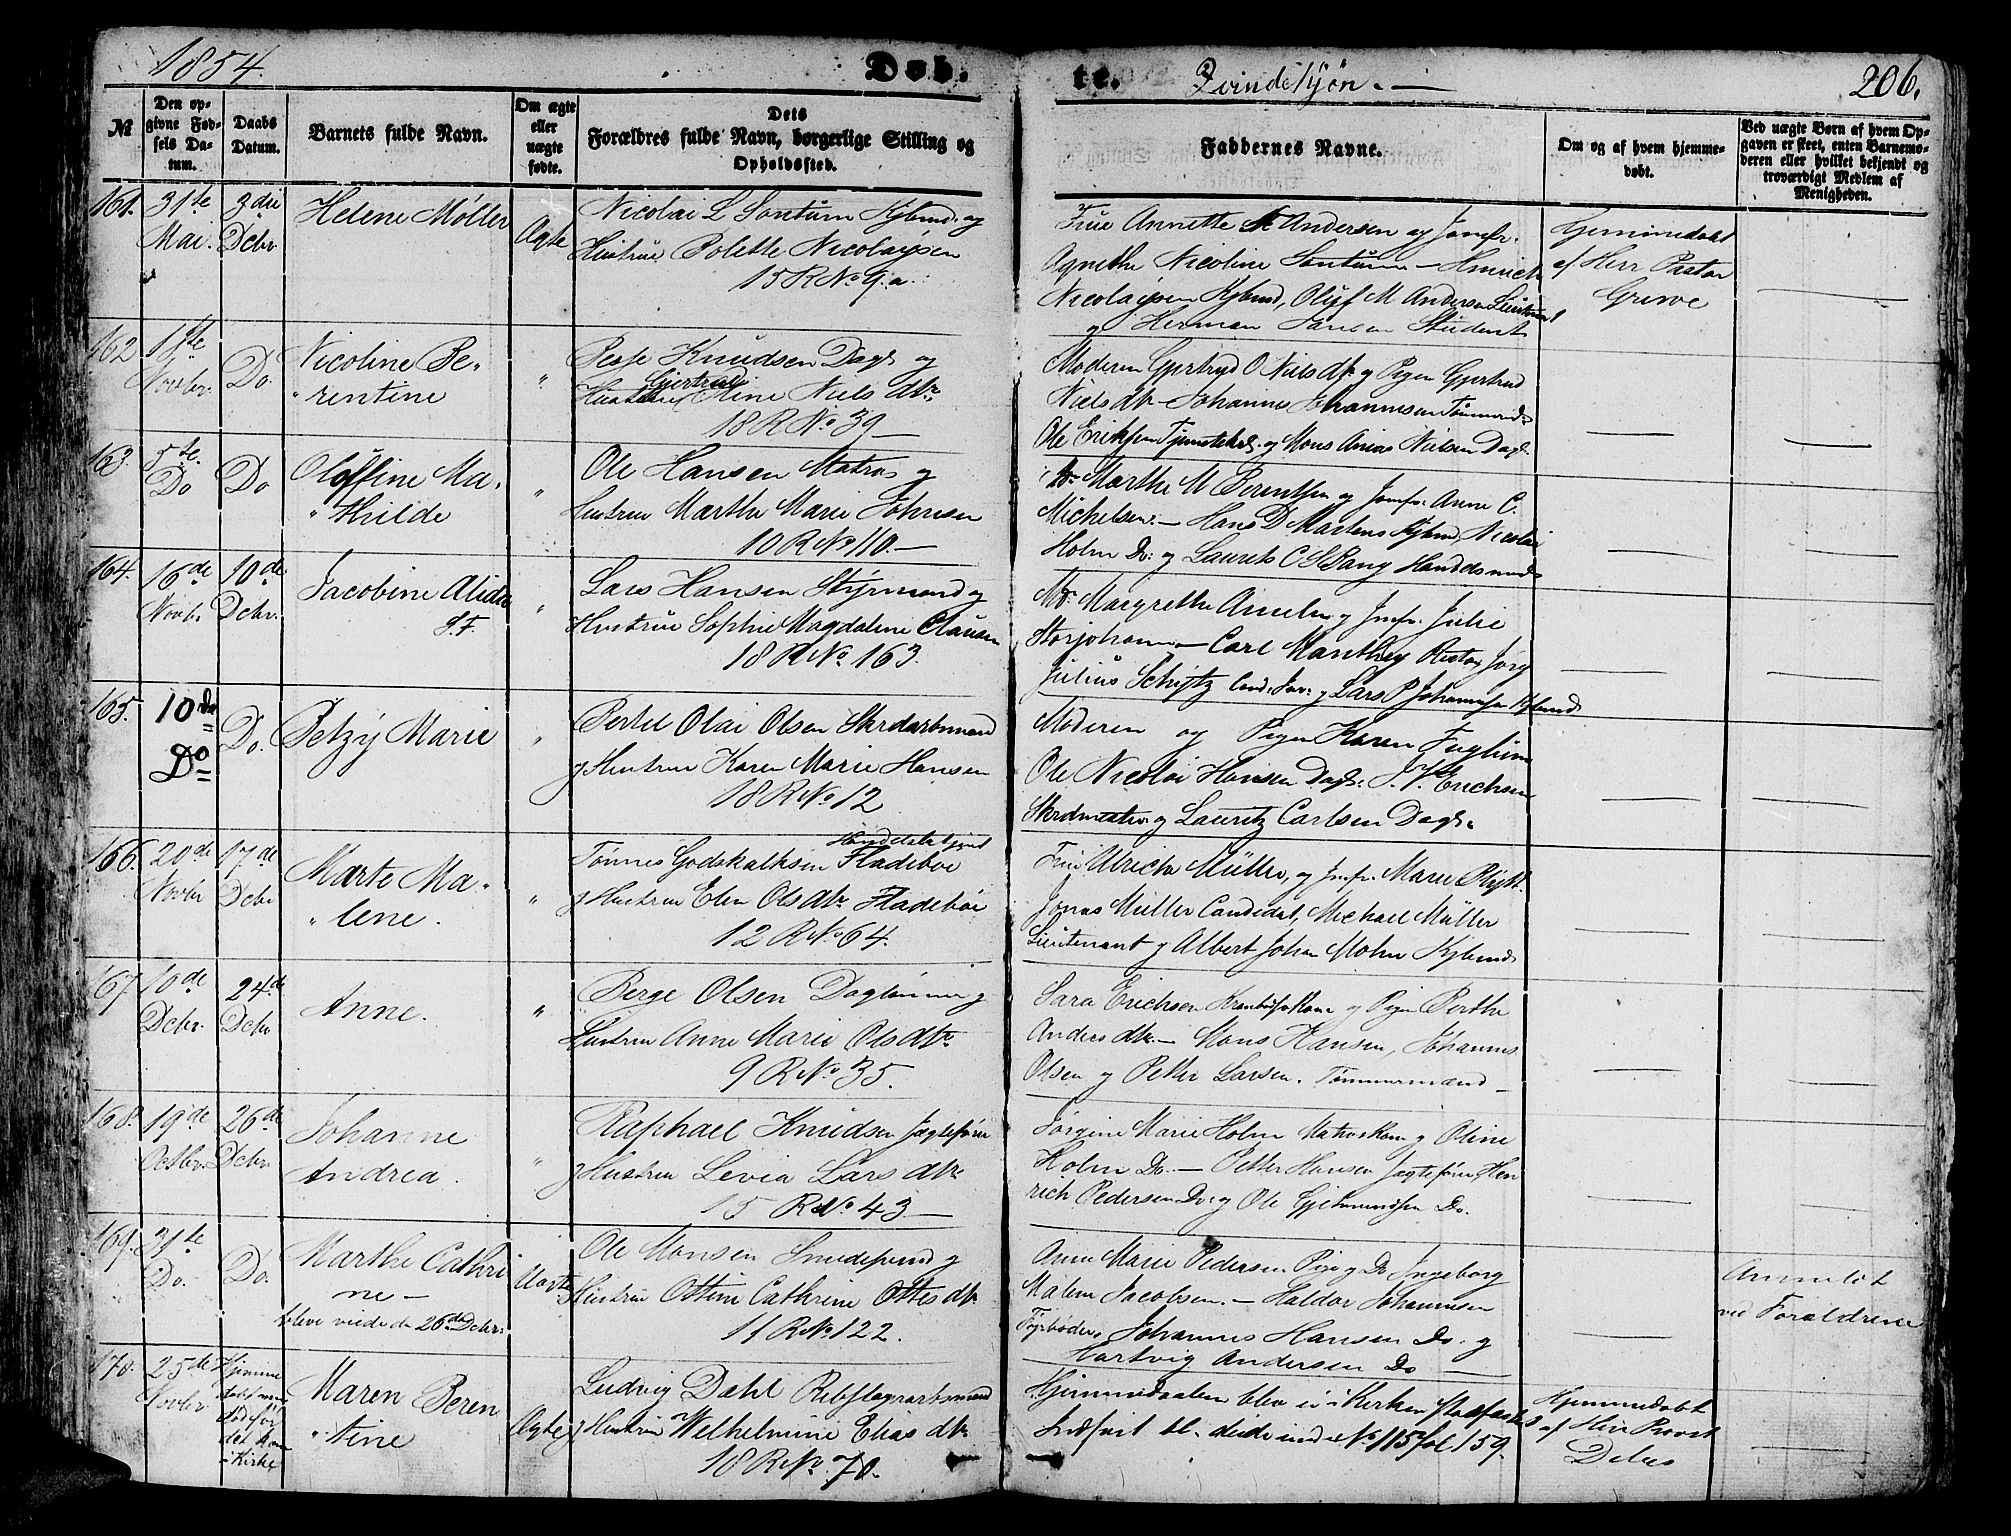 1854.
Døb.
te.
Qvindekjøn. —
206.
№
Den op-
givne Fød-
sels Da-
tum.
Daabs
Datum.
Barnets fulde Navn.
Om ægte
eller
uægte
fødte.
Dets
Forældres fulde Navn, borgerlige Stilling og
Opholdssted.
Faddernes Navne.
Om og af hvem hjemme-
døbt.
Ved uægte Børn af hvem Op-
gaven er skeet, enten Barnemo-
deren eller hvilket bekjendt og
troværdigt Medlem af
Menigheden.
161.
31te
Mai.
3die
Dcbr
Helene Møller
Ægte
Nicolai L Sontum Kjbmd. og
Hustrue Bolette Nicolaysen
15 R No 9.a.
Frue Annette Andersen og Jomfr.
Agnethe Nicoline Sontum — Hinrich
Nicolaysen Kjbmd, Oluf M Andersen Lieutenant
og Herman Jansen Student
Hjemmedøbt
af Herr Pastor
Greve
162
18te
Novbr.
Do.
Nicoline Be-
rentine
"
Knudsen Dagl og
Gjertrud
Hustrue Stine Niels dtr.
18 R No 39 —
Moderen Gjertryd O Niels dtr og Pigen Gjertrud
Niels dtr — Johannes Johannesen Tømmermd.
Ole Eriksen Tjenestekarl. og Mons Nielsen Dagl.
163.
5te
Do
Do
Oloffine Ma-
" thilde
"
Ole Hansen Matros og
Hustrue Marthe Marie Johnsen
10 R No 110. —
Marthe M Berentsen og Jomfr. Anne C.
Michelsen. — Hans D Martens Kjbmd, Nicolai
Holm Do: og Laurits C G Bang Handelsmand
164.
16de
Novbr.
10de
Dcbr.
Jacobine Alida
"
Lars Hansen Styrmand og
Hustrue Sophie Magdalene Clausen
18 R No 163.
Md. Margrethe Ameln og Jmfr. Julie
Storjohann — Carl Manthey
Julius Schiøtz Cand. og Lars P Johannesen Kjbmd
165.
10de
Do
Do.
Betzy Marie
"
Bertel Olai Olsen
og Hustrue Karen Marie Hansen
18 R No 12
Moderen og Pigen Karen
Ole Nicolai Hansen Dagl. Erichsen
og Lauritz Carlsen Dagl.
166.
20de
Novbr
17de
Dcbr
Marte Ma-
" lene.
"
Handelsbetjent
Tønnes Godskalksen Fladebøe
og Hustrue Elen Ols dtr. Fladebøe
12 R No 64.
Frue Ulricha Müller, og Jmfr. Marie
Jonas Müller Candidat, Michael Müller
Lieutenant og Albert Johan Mohn Kjbmd
167
10de
Dcbr.
24de
Dcbr
Anne.
"
Berge Olsen Dagleiner og
Hustrue Anne Marie Ols dtr
9 R No 35.
Sara Erichsen og Pigen Berthe
Anders dtr. — Mons Hansen, Johannes
Olsen og Petter Larsen. Tømmermænd —
168.
19de
Octbr.
26de
Dcbr
Johanne
Andrea.
"
Raphael Knudsen Jægtefører
og Hustrue Levia Lars dtr
15 R No 43 —
Jørgine Marie Holm Matroskone og Oline
Holm Do. — Petter Hansen Jægtefører, Hen-
rich Pedersen Do: og Ole Gjetmundsen Do.
169.
31te
Do.
Do.
Marthe Cathri
ne —
bleve viede d: 26de Dcbr:
Uægte
Ole Monsen Smedsvend og
Hustrue Ottine Cathrine Ottes dtr
11 R No 122.
Anne Marie Pedersen Pige og Do Ingeborg
Malene Jacobsen. — Haldor Johannesen
Johannes Hansen Do. og
Hartvig Andersen Do
Anmeldt
ved Forældrene
170.
25de
Novbr
Hjemme
døbt men
døde før
det kom
i Kirke
Maren Beren
" tine
Ægte
Ludvig Dahl Rebslagerarbmand
og Hustrue Welhelmine Elias dtr
18 R No. 70.
Hjemmedaaben blev ei i Kirken stadfæstet
Indført bl. døde under No 115 fol 159.
Hjemmedøbt
af Herr Provst